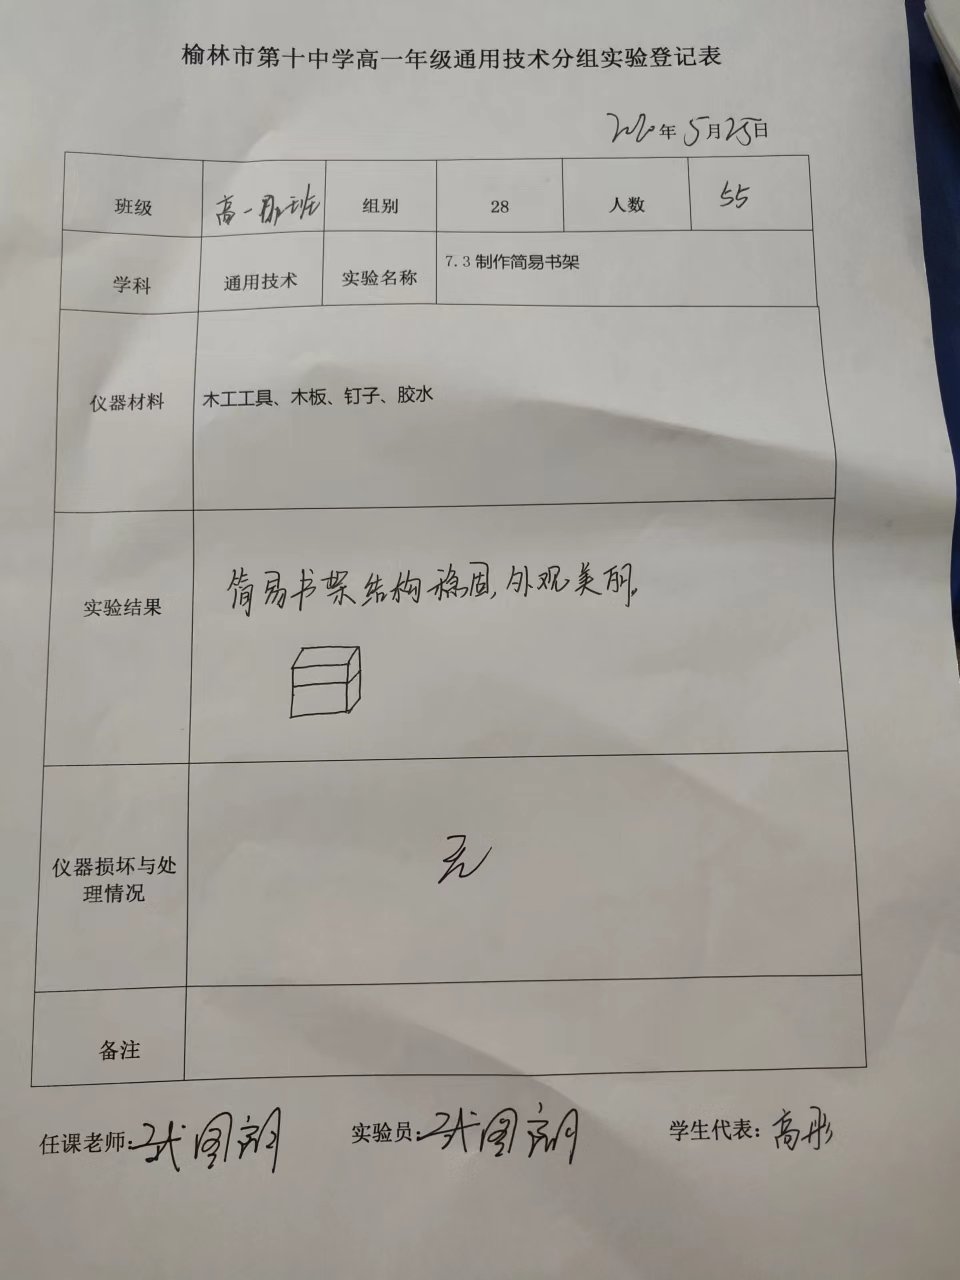 榆林市第十中学高一年级通用技术分组实验登记表
2020年5月25日
班级 高一 班 组别 28 人数 55
学科 通用技术 实验名称 7.3 制作简易书架
仪器材料 木工工具、木板、钉子、胶水
实验结果 简易书架结构稳固,外观美丽。
仪器损坏与处
理情况
无
备注
任课老师: 实验员: 学生代表:高彤